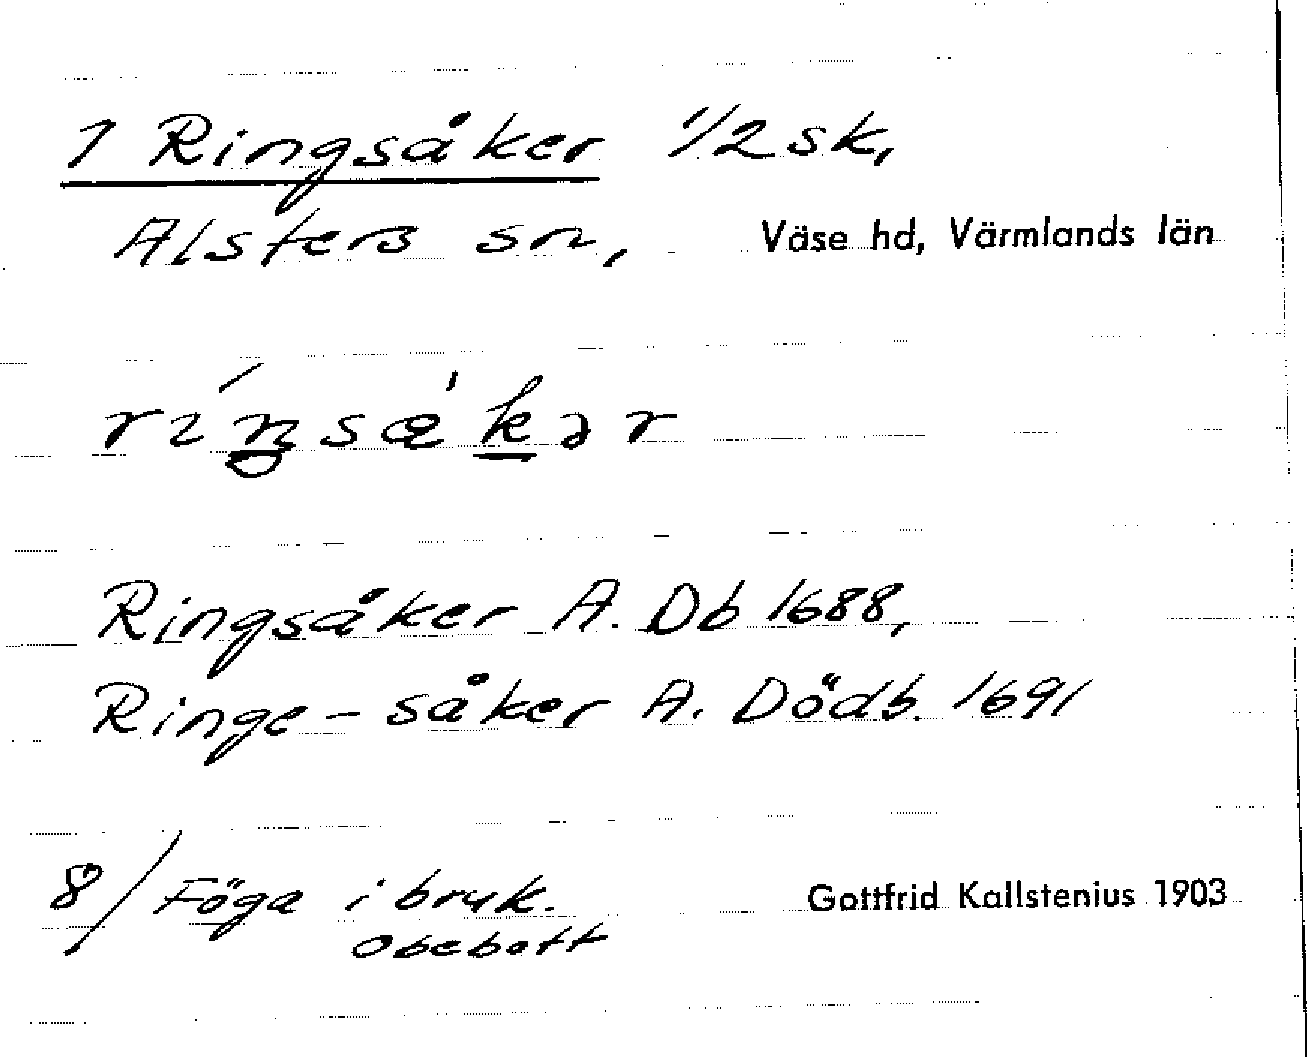 1 Ringsåker 1/2 sk,
Alsters sn, Väse hd, Värmlands län
Ringsåker A. Db 1688,
Ringe-såker A. Dödb. 1691
8/ Föga i bruk. Gottfrid Kallstenius 1903
Obebott